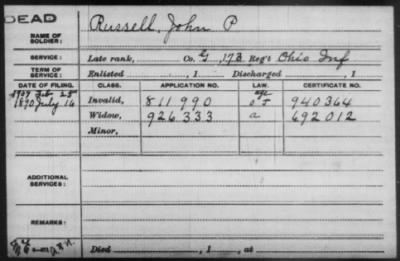 DEAD
NAME OF SOLDIER: Russell, John P
SERVICE: Late rank, Co. G, 173 Reg't Ohio Inf
TERM OF SERVICE: Enlisted , 1 Discharged , 1
DATE OF FILING. CLASS. APPLICATION NO. LAW. CERTIFICATE NO.
1890 July 16 Invalid, 811990 940364
Widow, 926333 a 692012
Minor,
ADDITIONAL SERVICES:
REMARKS:
Died , 1 , at